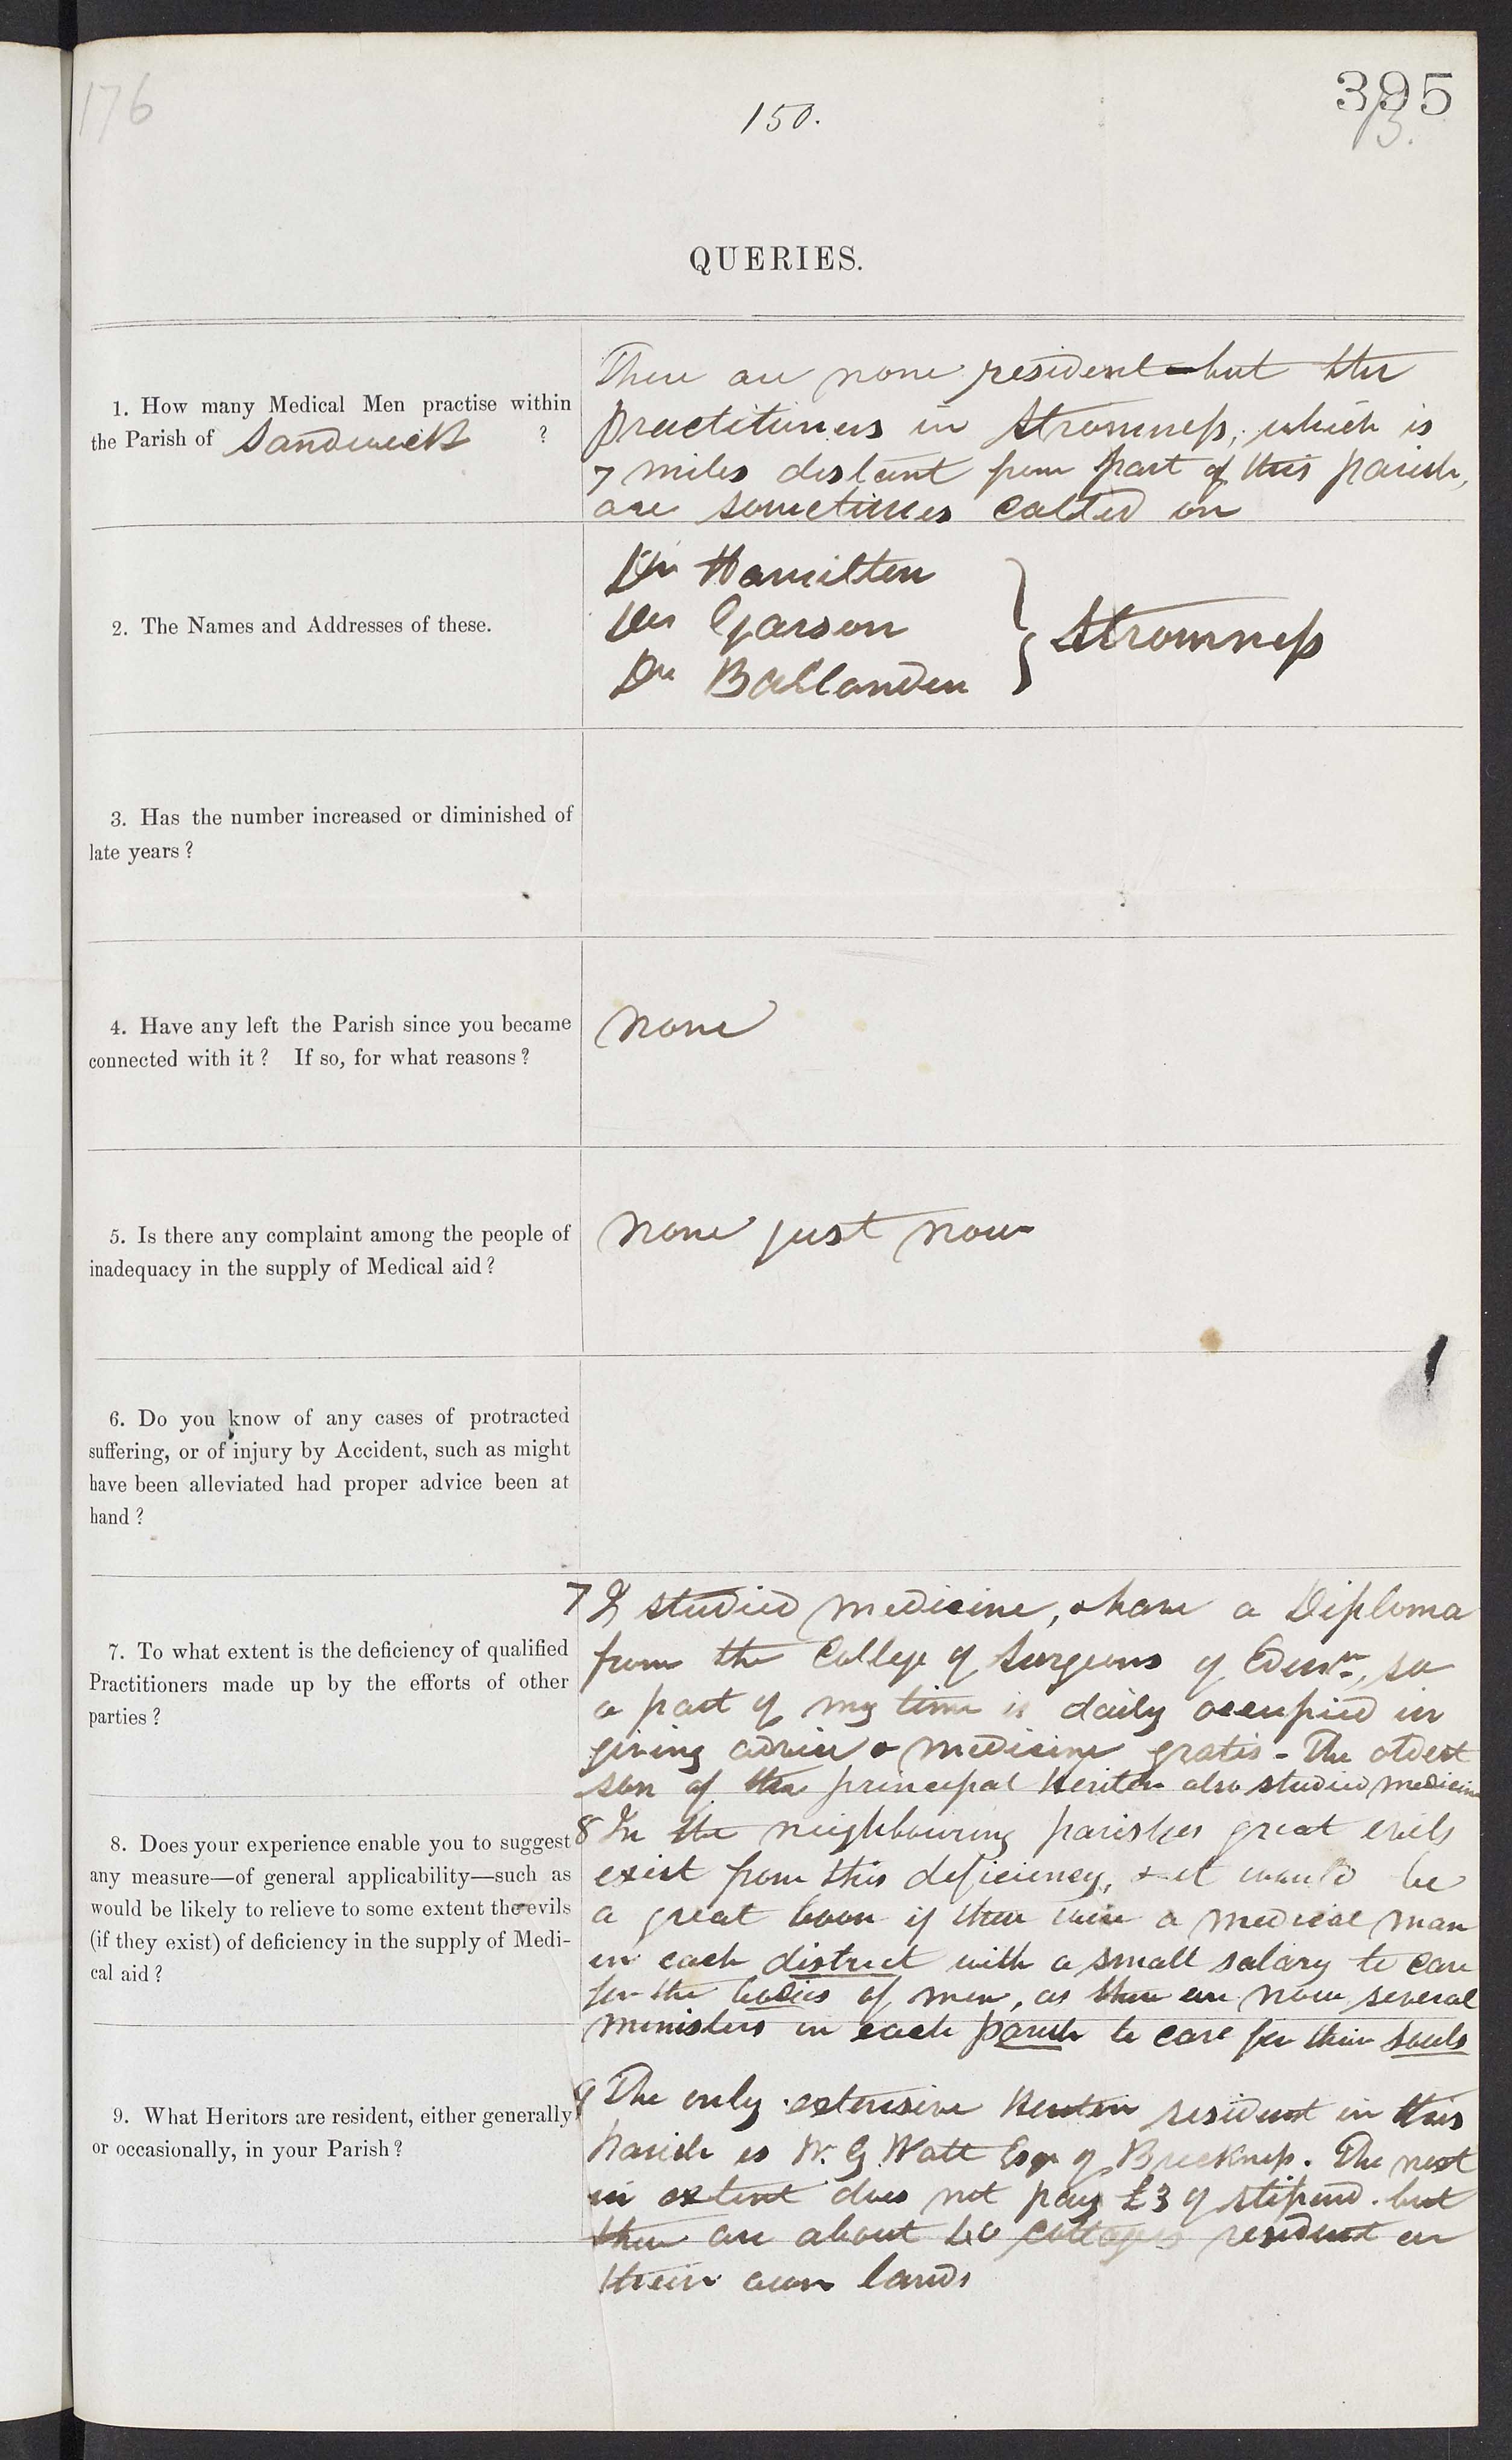 176
150.
395
13.
QUERIES.
1. How many Medical Men practise within
the Parish of Sandwick ?
There are none resident - but the
practitioners in Stromness, which is
7 miles distant from part of this parish,
are sometimes called on
2. The Names and Addresses of these.
Dr Hamilton
Dr Garson
Dr Ballanden
} Stromness
3. Has the number increased or diminished of
late years ?
4. Have any left the Parish since you became
connected with it ? If so, for what reasons ?
none
5. Is there any complaint among the people of
inadequacy in the supply of Medical aid ?
none just now
6. Do you know of any cases of protracted
suffering, or of injury by Accident, such as might
have been alleviated had proper advice been at
hand ?
7. To what extent is the deficiency of qualified
Practitioners made up by the efforts of other
parties ?
7 I studied medicine, & have a Diploma
from the College of Surgeons of Edinr, so
a part of my time is daily occupied in
giving advice & medicine gratis - The oldest
son of the principal heritor also studied medicine
8. Does your experience enable you to suggest
any measure—of general applicability—such as
would be likely to relieve to some extent the evils
(if they exist) of deficiency in the supply of Medi-
cal aid ?
8 In the neighbouring parishes great evils
exist from this deficiency, & it would be
a great boon if there were a medical man
in each district with a small salary to care
for the bodies of men, as there are now several
ministers in each parish to care for their souls
9. What Heritors are resident, either generally
or occasionally, in your Parish ?
9 The only extensive Heritor resident in this
parish is W. G. Watt Esqr of Breckness. The next
in extent does not pay £3 of stipend. but
there are about 40 resident on
their own lands